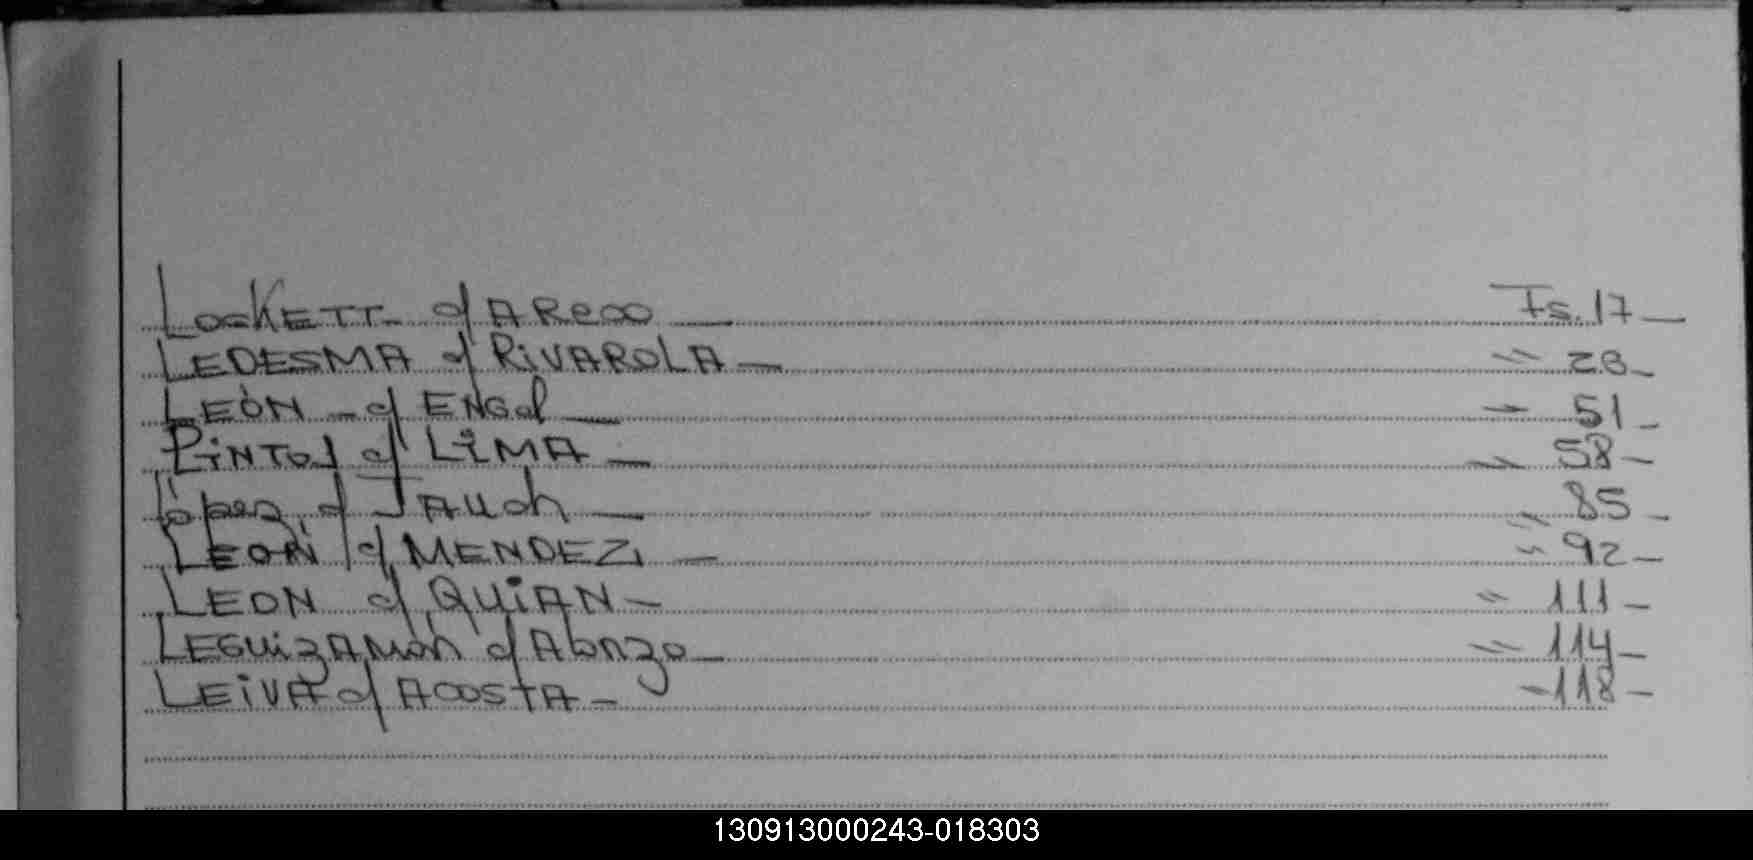 LocKETT c/ AReco Fs. 17
LEDESMA c/ RiVAROLA " 28
LEÓN c/ ENGel " 51
PiNTOS c/ LiMA " 58
López c/ JAUch " 85
LEON c/ MENDEZ " 92
LEON c/ QUiAN " 111
LEGUizAMón c/ Alonzo " 114
LEiVA c/ ACOSTA " 118
130913000243-018303